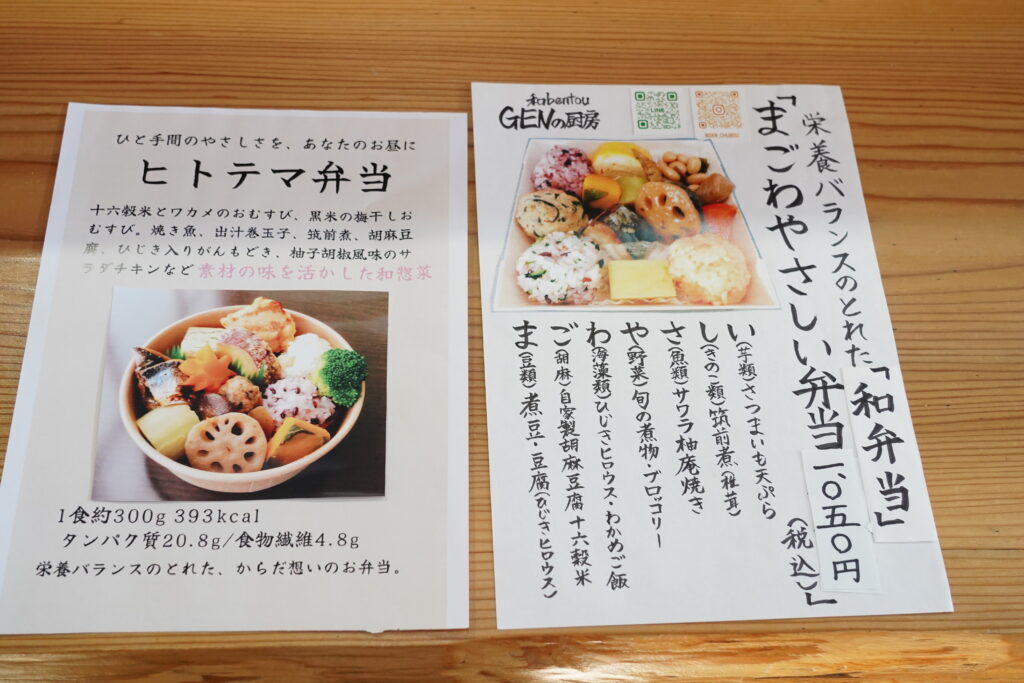 ひと手間のやさしさを、あなたのお昼に
ヒトテマ弁当
十六穀米とワカメのおむすび、黒米の梅干しお
むすび。焼き魚、出汁巻玉子、筑前煮、胡麻豆
腐、ひじき入りがんもどき、柚子胡椒風味のサ
ラダチキンなど 素材の味を活かした和惣菜
1食約300g 393kcal
タンパク質20.8g/食物繊維4.8g
栄養バランスのとれた、からだ想いのお弁当。
wabentou
GENの厨房
LINE
栄養バランスのとれた「和弁当」
「まごわやさしい弁当」
一、〇五〇円
(税込)
い(芋類)さつまいも天ぷら
し(きのこ類)筑前煮(椎茸)
さ(魚類)サワラ柚庵焼き
や(野菜)旬の煮物・ブロッコリー
わ(海藻類)ひじきヒロウス・わかめご飯
ご(胡麻)自家製胡麻豆腐 十六穀米
ま(豆類)煮豆・豆腐(ひじきヒロウス)